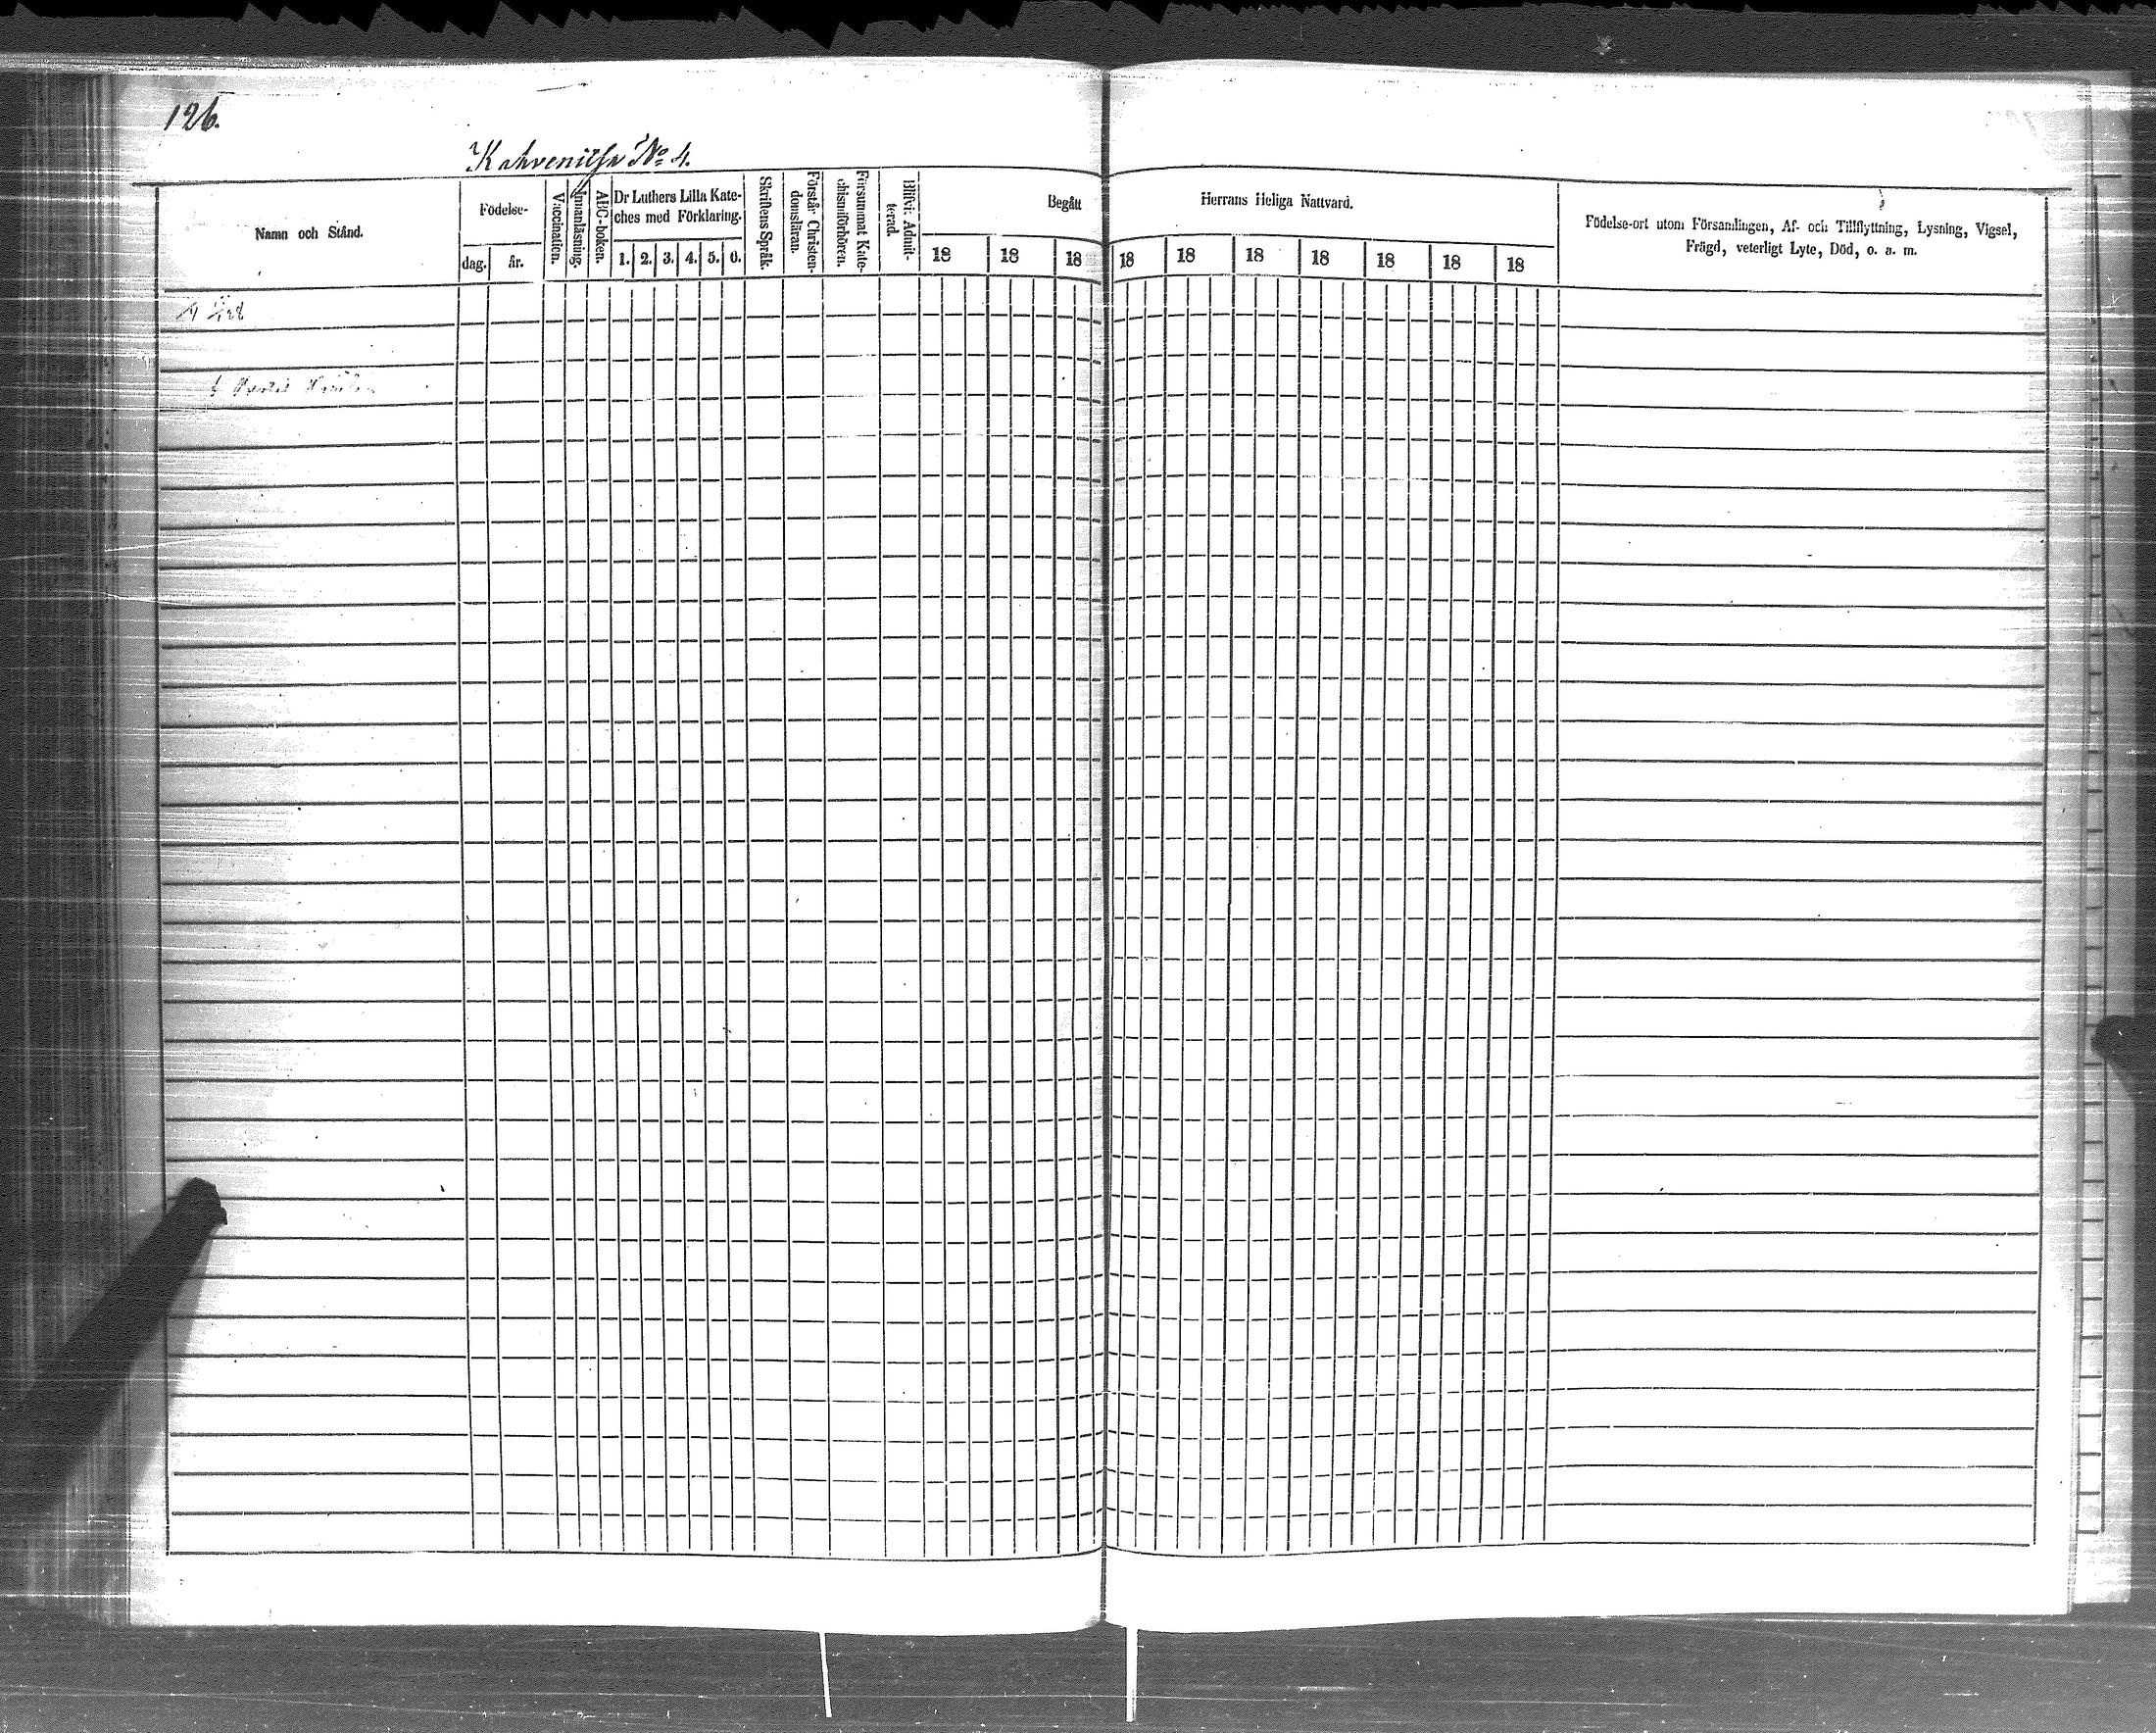 126.
Kahvenitsa No 4.
Namn och Stånd.
Födelse-
dag.
år.
Vaccination.
Innanläsning.
ABC-boken.
Dr Luthers Lilla Kate-
ches med Förklaring.
1. 2. 3. 4. 5. 6.
Skriftens Språk.
Förstår Christen-
domsläran.
Försummat Kate-
chismiförhören.
Blifvit Admit-
terad.
Begått Herrans Heliga Nattvard.
18 18 18 18 18 18 18 18 18 18
Födelse-ort utom Församlingen, Af- och Tillflyttning, Lysning, Vigsel,
Frägd, veterligt Lyte, Död, o. a. m.